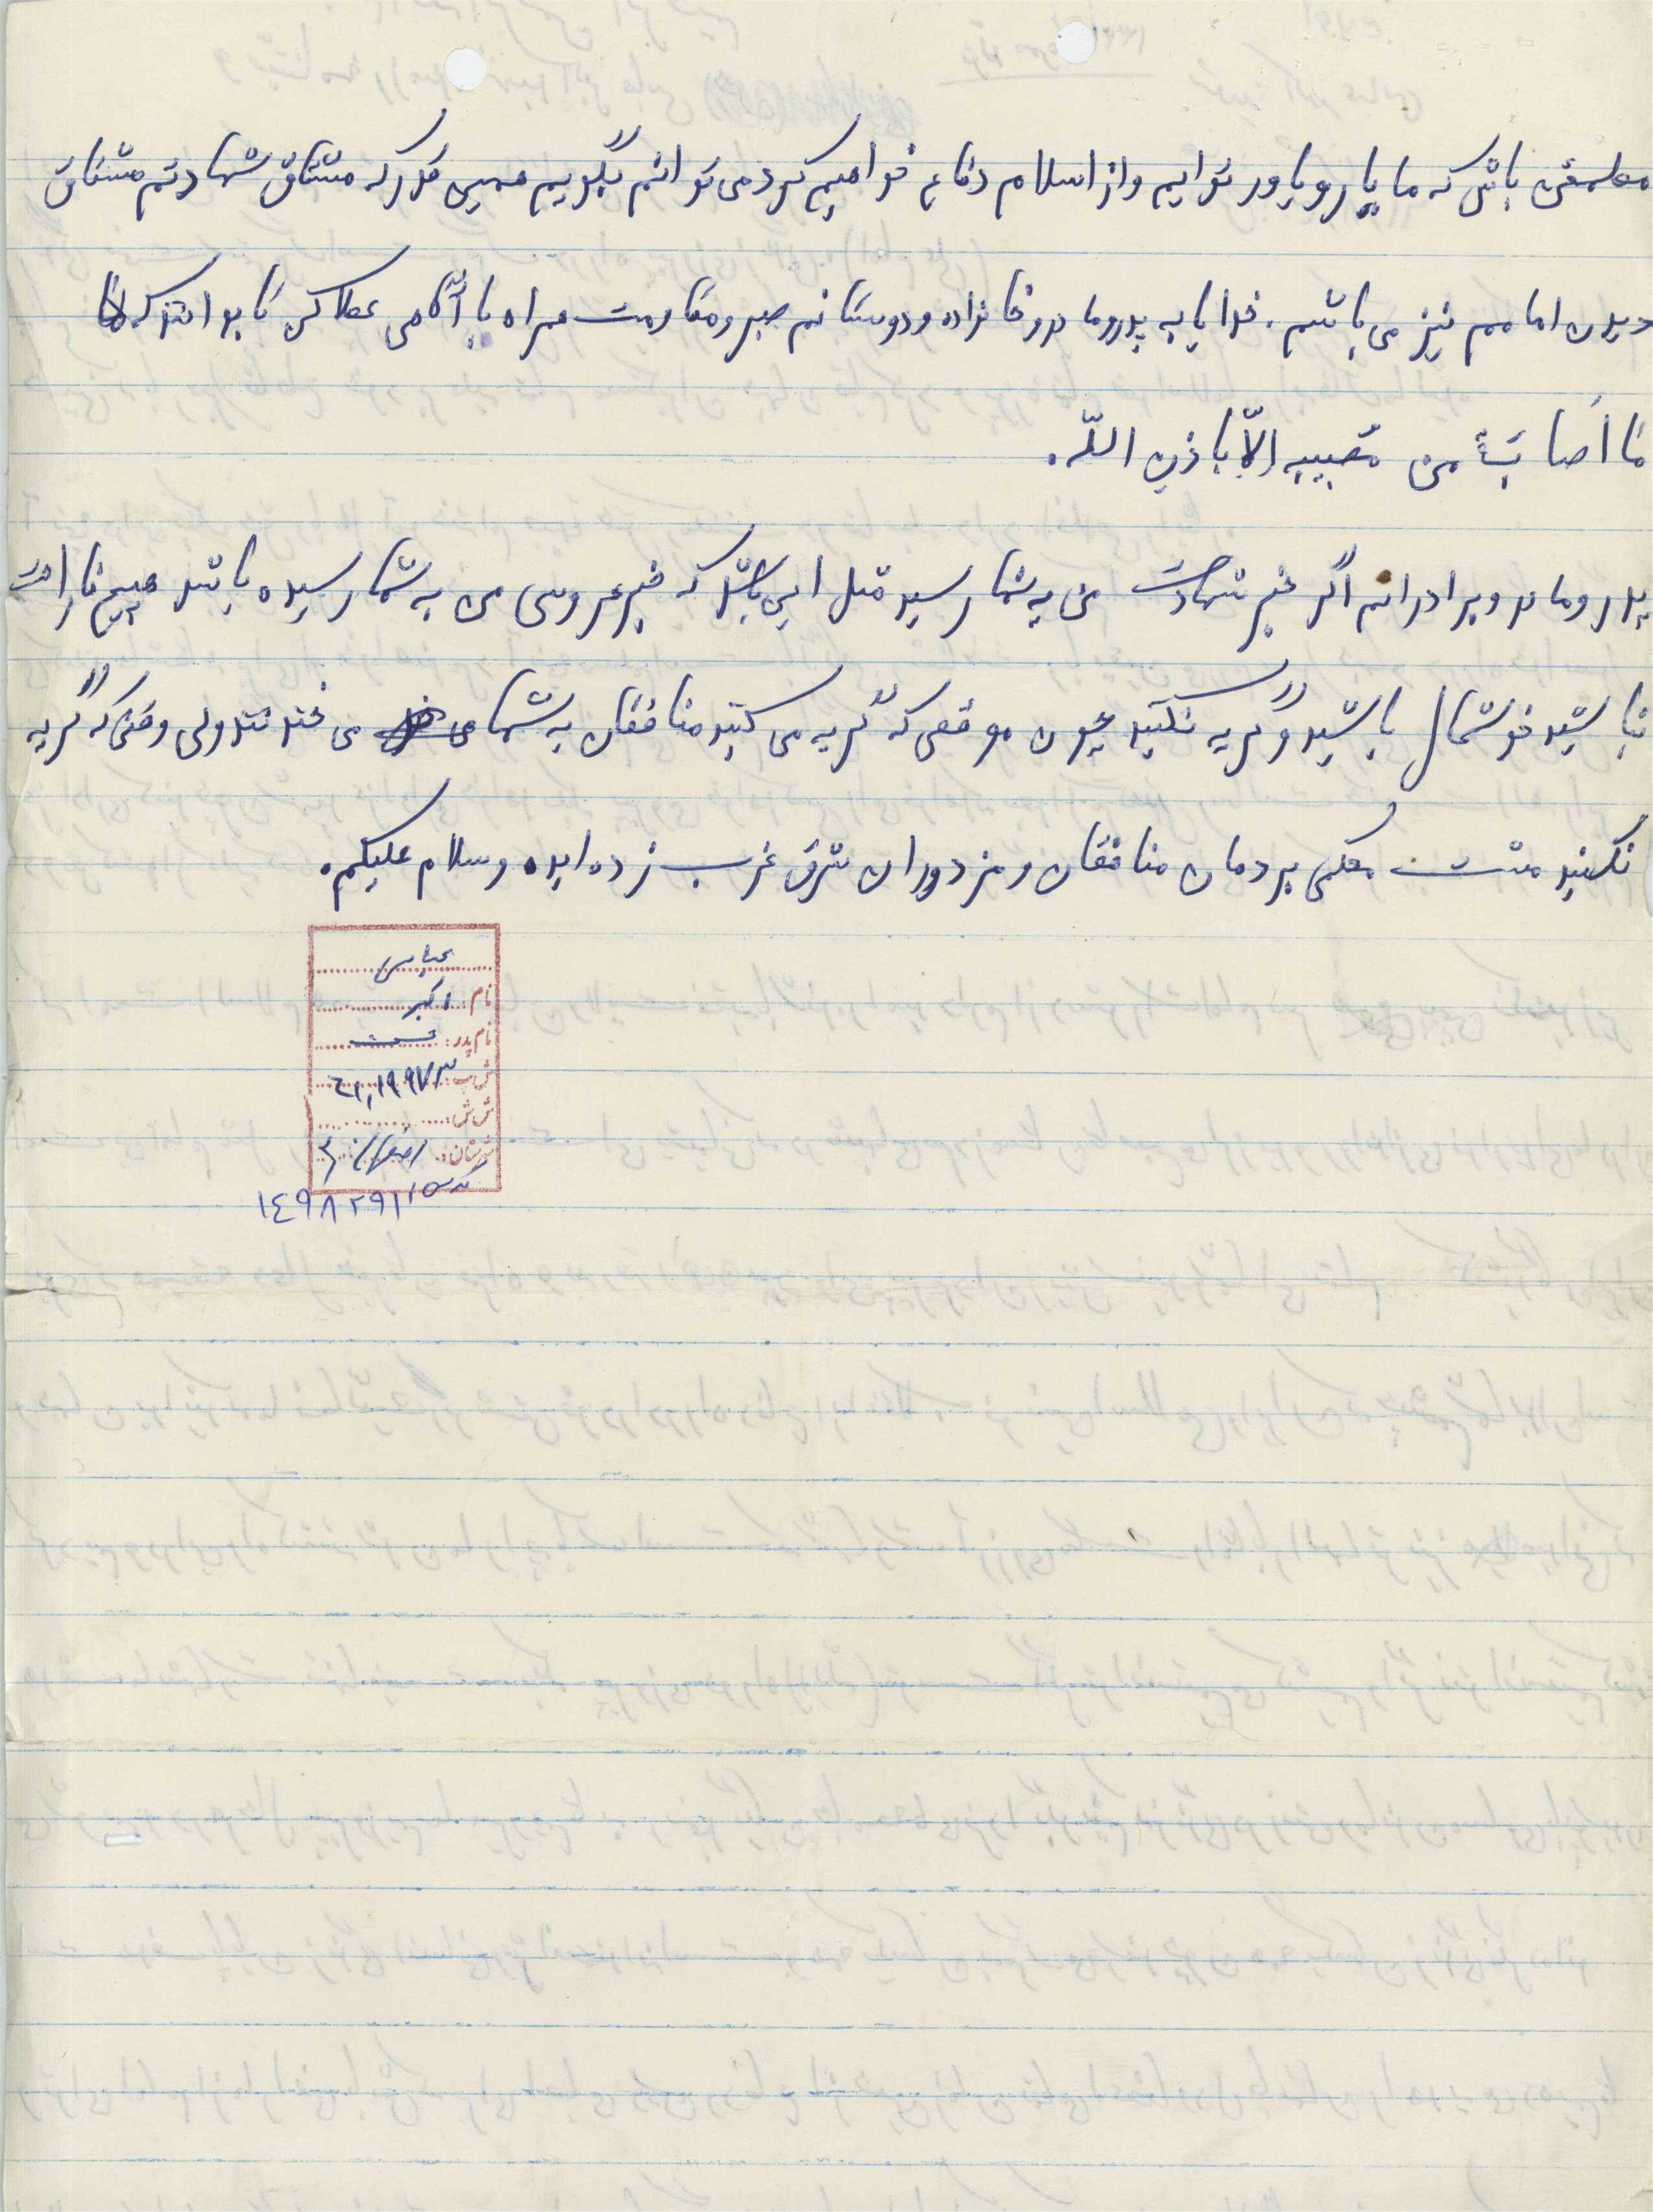 مطمئن باش که ما یار و یاور توایم و از اسلام دفاع خواهیم کرد می توانم بگویم همین قدر که مشتاق شهادتم مشتاق
دیدن امامم نیز می باشم. خدایا به پدر و مادر و خانواده و دوستانم صبر و مقاومت همراه با آگاهی عطا کن تا بدانند که
ما اَصابَ من مُصیبهٍ اِلاّ باذنِ اللّه.
پدر و مادر و برادرانم اگر خبر شهادت من به شما رسید مثل این باشد که خبر عروسی من به شما رسیده باشد هیچ ناراحت
نباشید خوشحال باشید و گریه نکنید چون موقعی که گریه می کنید منافقان به شما می خندند ولی وقتی که گریه
نکنید مشت محکمی بر دهان منافقان و مزدوران شرق غرب زده اید. وسلام علیکم.
عباسی
نام: اکبر
نام پدر:
ش پ:
ش ش:
شهرستان: اصفهان
۱٤۹۸۲۹۱